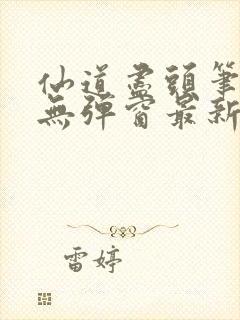 仙道盡頭筆
無彈窗最新
雷婷